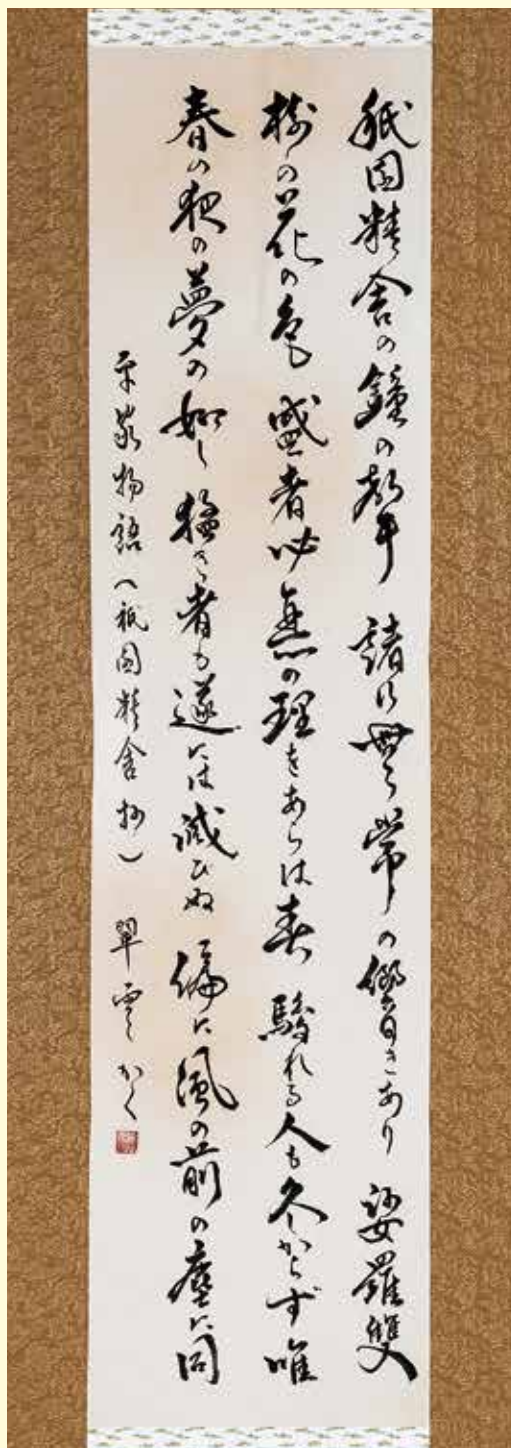 祇園精舎の鐘の聲 諸行無常の響きあり 娑羅雙
樹の花の色 盛者必衰の理をあらはす 驕れる人も久からず唯
春の夜の夢の如し 猛き者も遂には滅ひぬ 偏に風の前の塵に同
平家物語(祇園精舎抄) 翠雲かく